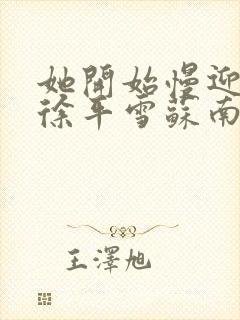 她開始慢迎
徐平雪蘇南
王澤旭